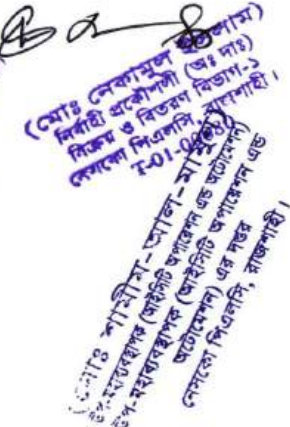 (মোঃ নেকামুল ইসলাম)
নির্বাহী প্রকৌশলী (অঃ দাঃ)
বিক্রয় ও বিতরণ বিভাগ-১
নেসকো পিএলসি, রাজশাহী।
মোঃ শামীম-আল-মামুন
উপ-মহাব্যবস্থাপক (আইসিটি অপারেশন এন্ড অটোমেশন)
উপ-মহাব্যবস্থাপক (আইসিটি অপারেশন এন্ড
অটোমেশন) এর দপ্তর
নেসকো পিএলসি, রাজশাহী।